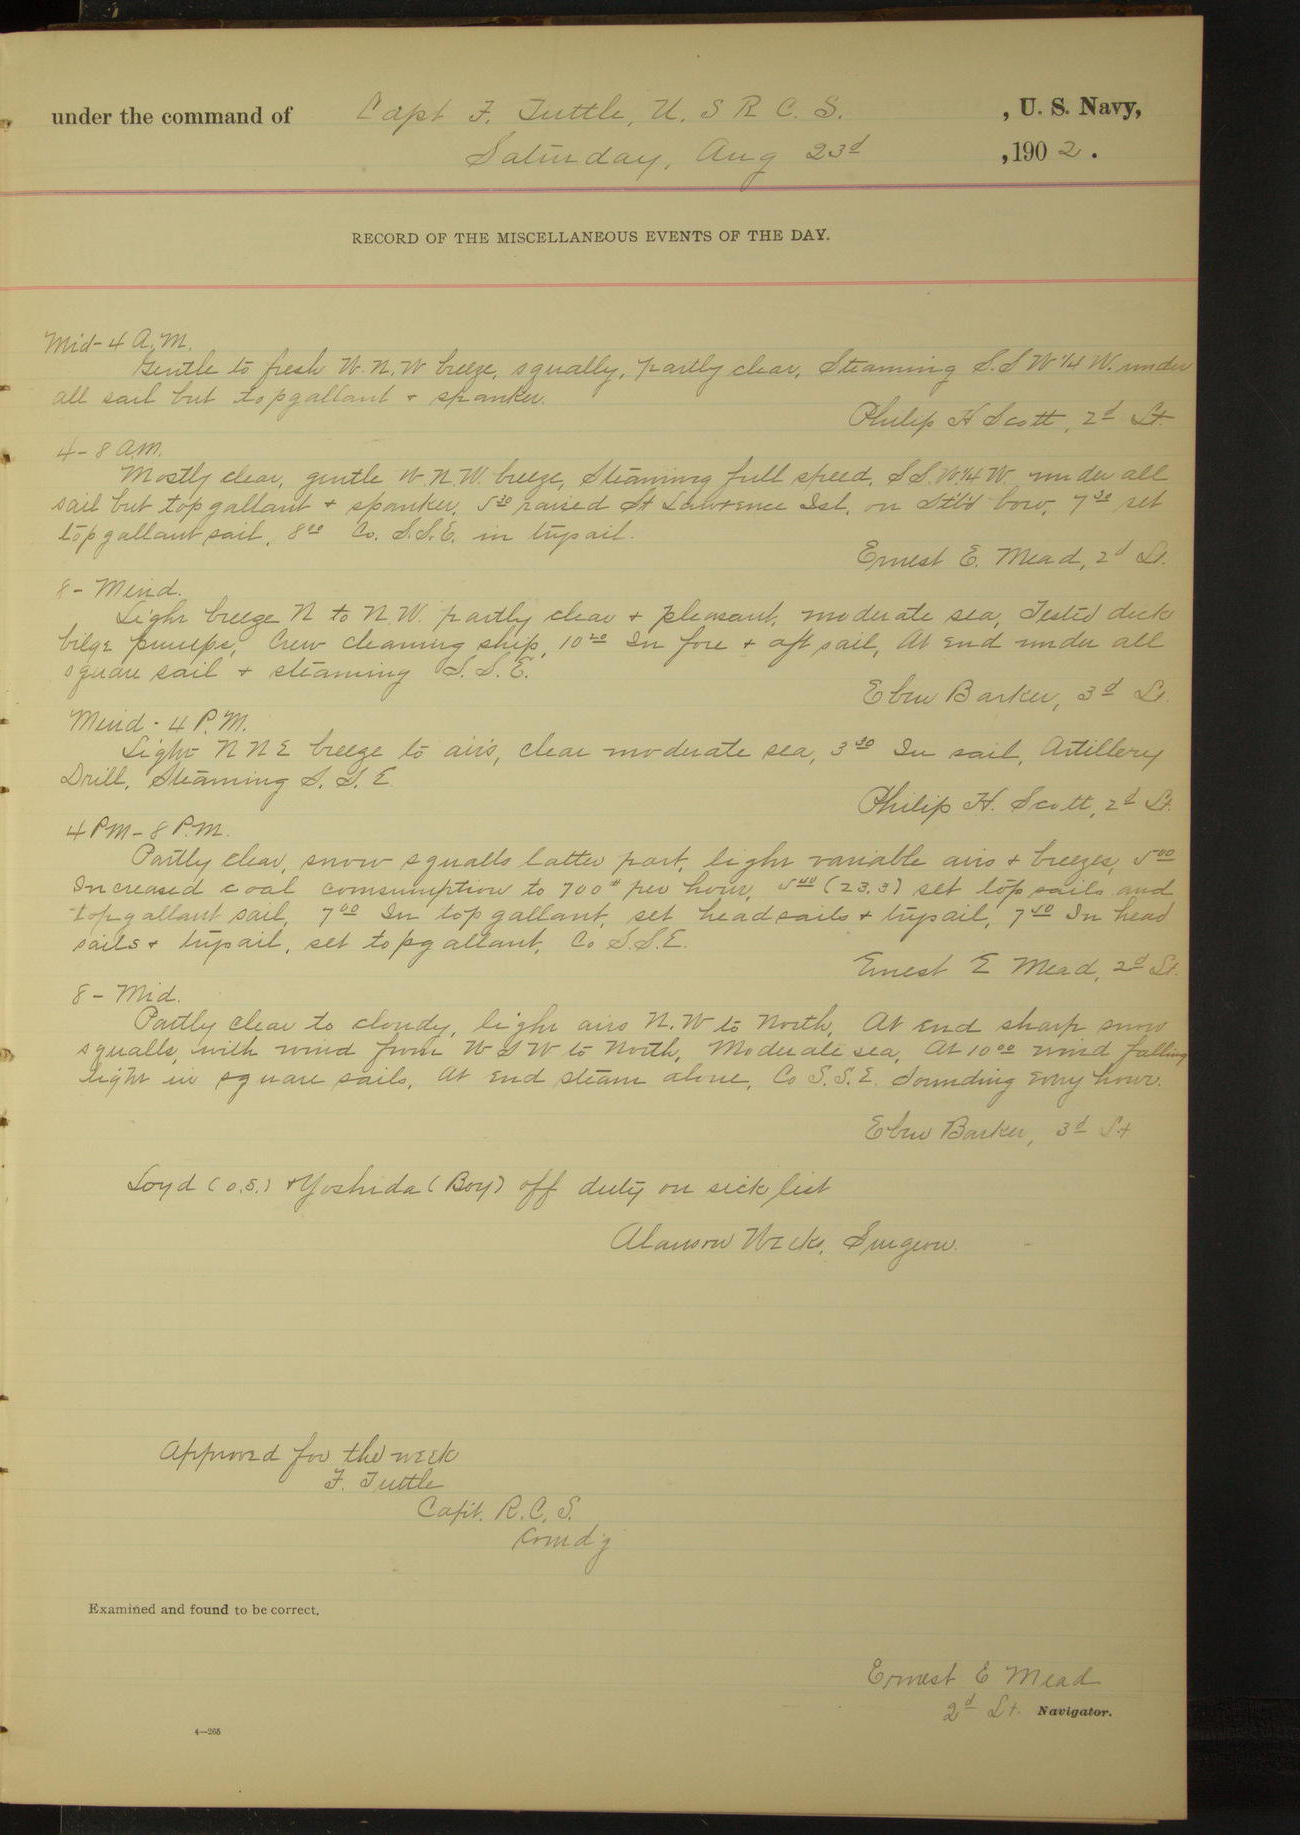 under the command of Capt F. Tuttle, U. S R C. S. , U. S. Navy,
Saturday, Aug 23d , 190 2 .
RECORD OF THE MISCELLANEOUS EVENTS OF THE DAY.
Mid- 4 A.M.
Gentle to fresh W. N. W breeze, squally, partly clear, Steaming S. S W 1/4 W. under
all sail but topgallant + spanker.
Philip H Scott, 2d Lt.
4 - 8 AM.
Mostly clear, gentle W. N. W. breeze, Steaming full speed, S S. W. 1/4 W. under all
sail but topgallant + spanker, 5 30 raised St Lawrence Isl. on Stb'd bow, 7 30 set
topgallant sail, 8 00 Co. S. S. E. in trysail.
Ernest E. Mead, 2d Lt.
8 - Merid.
Light breeze N to N. W. partly clear + pleasant, moderate sea, Tested deck
bilge pumps, Crew cleaning ship, 10 20 In fore + aft sail, At end under all
square sail + steaming S. S. E.
Eben Barker, 3d Lt.
Merid - 4 P. M.
Light N N E breeze to airs, clear moderate sea, 3 30 In sail, Artillery
Drill, Steaming S. S. E
Philip H. Scott, 2d Lt.
4 PM - 8 P.M.
Partly clear, snow squalls latter part, light variable airs + breezes, 5 00
Increased coal comsumption to 700 # per hour, 5 40 (23.3) set top sails and
topgallant sail, 7 00 In topgallant, set headsails + trysail, 7 50 In head
sails + trysail, set topgallant, Co S. S. E.
Ernest E Mead, 2d Lt.
8 - Mid.
Partly clear to cloudy, light airs N. W to North, At end sharp snow
squalls, with wind from W S W to North, Moderate sea, At 10 00 wind falling
light in square sails, At end steam alone, Co S. S. E. Sounding every hour.
Eben Barker, 3d Lt
Loyd (O.S.) + Yoshida (Boy) off duty on sick list
Alanson Weeks, Surgeon.
Approved for the week
F. Tuttle
Capt. R. C. S.
Comd'g
Examined and found to be correct.
Ernest E Mead
2d Lt. Navigator.
4—265